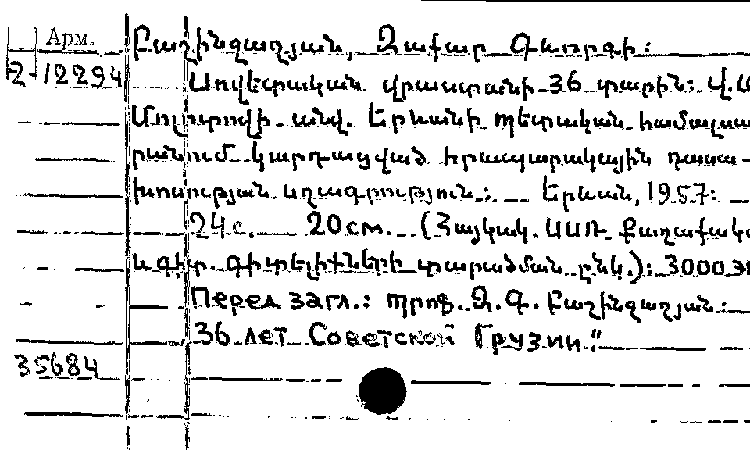 Арм.
2-12294
Բաշինջաղյան, Զաքար Գևորգի:
Սովետական վրաստանի 36 տարին: Վ.Մ
Մոլոտովի անվ. Երևանի պետական համալսա
րանում կարդացված հրապարակային դասա-
խոսության սղագրություն: Երևան, 1957:
24с. 20см. (Հայկակ. ՍՍՌ քաղաքակ
և գիտ. գիտելիքների տարածման ընկ.): 3000 э
Перед загл.: պրոֆ. Զ.Գ. Բաշինջաղյան:
36 лет Советской Грузии."
35684